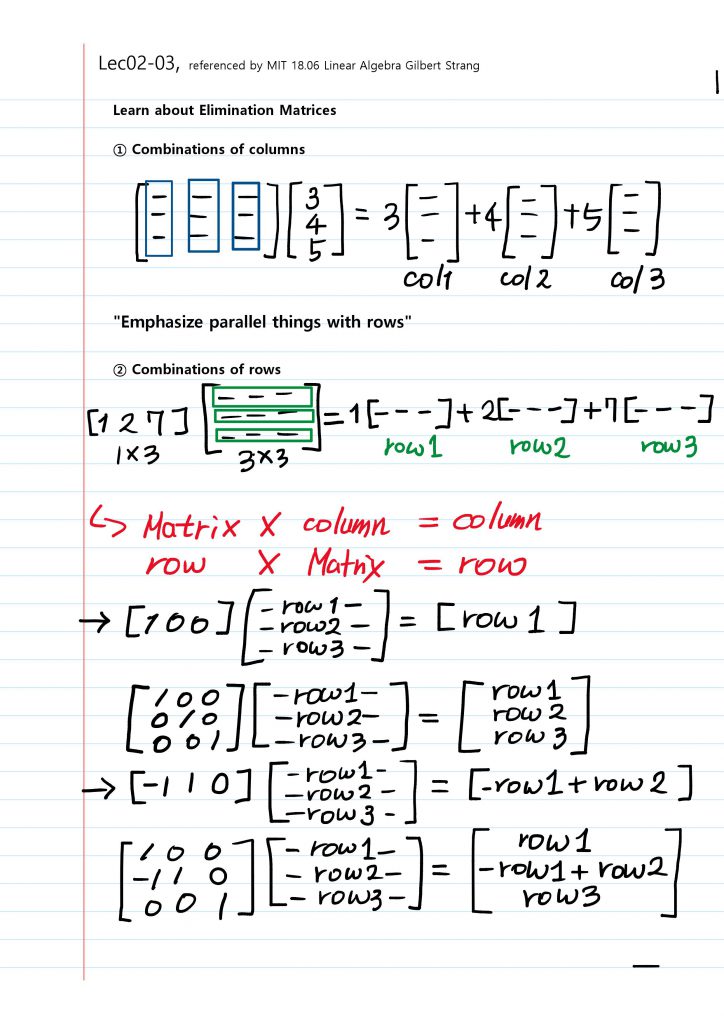 Lec02-03, referenced by MIT 18.06 Linear Algebra Gilbert Strang
Learn about Elimination Matrices
① Combinations of columns
[– – –] [3 4 5] = 3[– – –] + 4[– – –] + 5[– – –]
col1 col2 col3
"Emphasize parallel things with rows"
② Combinations of rows
[1 2 7] [– – –] = 1[– – –] + 2[– – –] + 7[– – –]
1×3 3×3 row1 row2 row3
↳ Matrix × column = column
row × Matrix = row
→ [1 0 0] [–row1– –row2– –row3–] = [row1]
[1 0 0
0 1 0
0 0 1] [–row1– –row2– –row3–] = [row1 row2 row3]
→ [-1 1 0] [–row1– –row2– –row3–] = [-row1+row2]
[1 0 0
-1 1 0
0 0 1] [–row1– –row2– –row3–] = [row1 -row1+row2 row3]